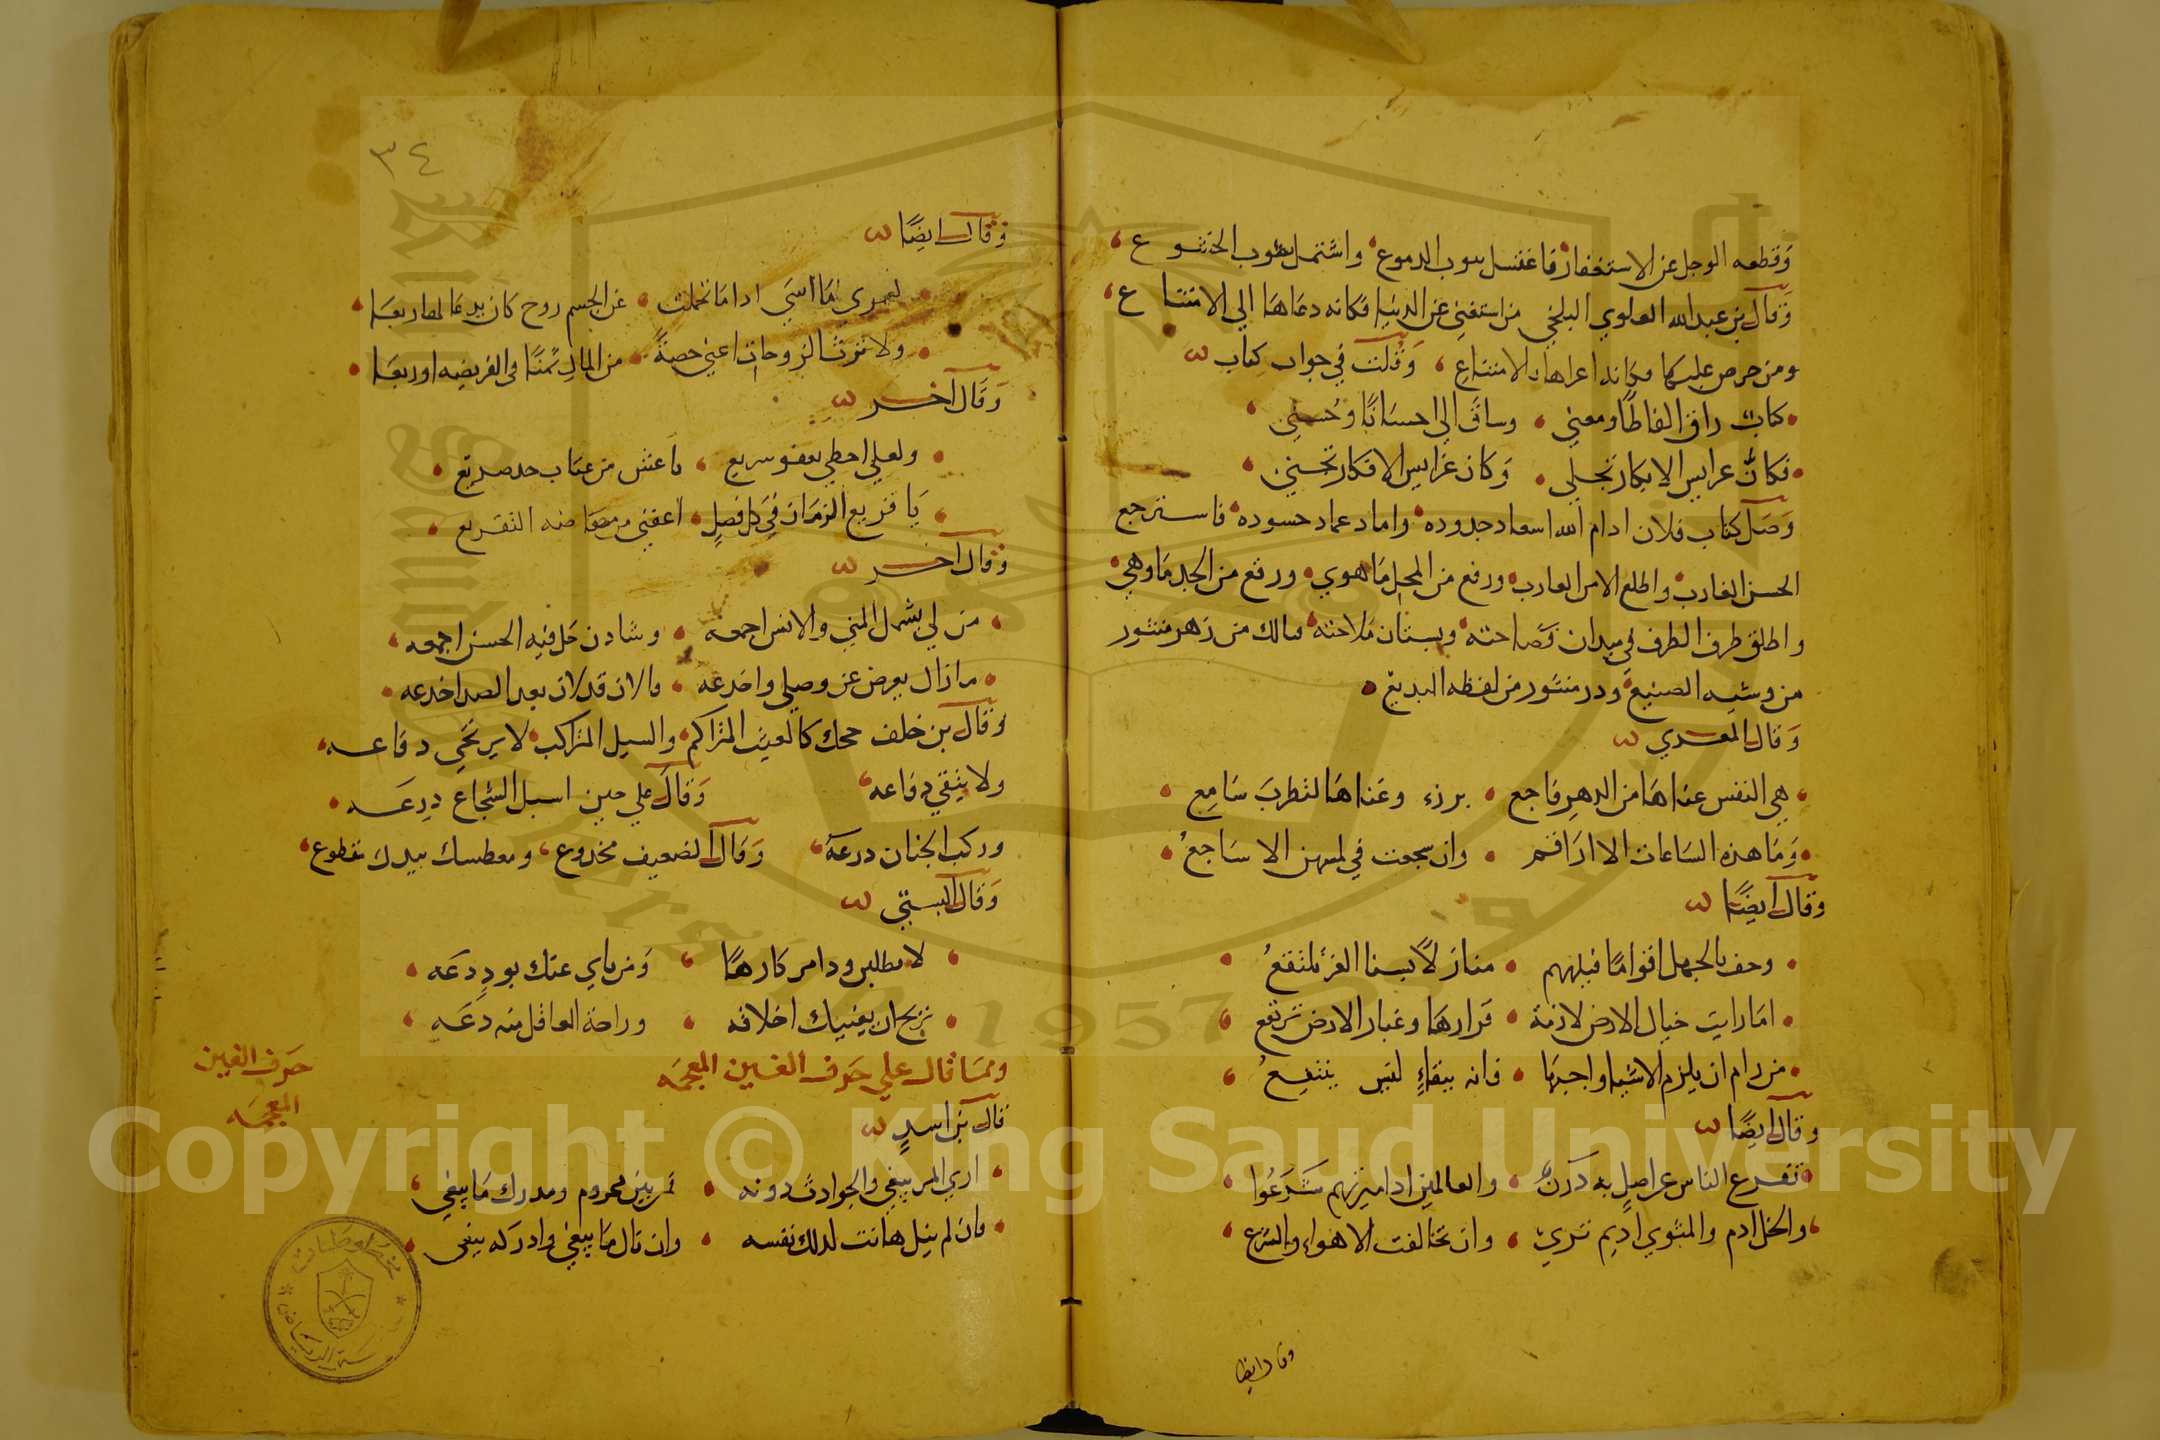 وقطعه الوجل عن الاستغفار فاغتسل بثوب الدموع واشتمل بثوب الخشوع
وقال بن عبد الله العلوي البلخي من استغنى عن الدنيا فكانه دعاها الي الامتناع
ومن حرص عليها فكانه اعراها بالامتناع وقلت في جواب كتاب
كتاب راق الفاظا ومعني وساق الي احسانا وحسني
فكان عرايس الابكار تجلي وكان غرايس الافكار تجني
وصل كتاب فلان ادام الله اسعاد جدوده واماد عماد حسوده فاسترجع
الحسن الغارب واطلع الامر العازب ورفع من المجد ما هوي ورقع من الجد ما وهي
واطلق طرف الطرف في ميدان فصاحته وبستان ملاحته مالك من زهر منثور
من وشيه الصنيع ودر منثور من لفظه البديع
وقال المعري
هي النفس عناها من الدهر فاجع برزء وغناها لتطرب سامع
وما هذه الساعات الا اراقم وان سجعت في لمسهن الاساجع
وقال ايضا
وخف بالجهل اقوام فبلغهم منازلا بسنا العز تلتفع
اما رايت جبال الارض لازمة قرارها وغبار الارض ترتفع
من رام ان يلزم الاشيا واجبها فانه ببقاء ليس ينتفع
وقال ايضا
تفرع الناس عن اصل به درن والعالمين اذا ميزتهم شرعوا
والخل ادم والمثوي اديم ثري وان تخالفت الاهواء والشرع
وقال ايضا
٣٤
وقال ايضا
لعمري ما اسي اذا ما تحملت عن الجسم روح كان يدعا لها ربعا
ولا ترث الزوجات اعني حصة من المال ثمنا في الفريضه او ربعا
وقال آخر
ولعلي احظي بعفو سريع
يا قريع الزمان في كل فصل اعفني من مضاضه التقريع
وقال آخر
من لي بشمل المني والانس اجمعه وشادن حل فيه الحسن اجمعه
ما زال يعرض عن وصلي واخدعه فالان قد لان بعد الصد اخدعه
وقال بن خلف كالغيث المتراكم والسيل المتراكب لا يرتجي دفاعه
ولا يتقي دفاعه وقال علي حين اسبل الشجاع درعه
وركب الجنان درعه وقال الضعيف مخدوع ومعطسك بيدك مقطوع
وقال البستي
لا تطلبن ود امر كارها ومن ناي عنك بود دعه
نزيح ان يعنيك اخلاقه وراحة العاقل منه دعه
ومما قال علي حرف الغين المعجمه
حرف الغين
المعجمه
قال بن اسد
اري المر يبغي والحوادث دونه فمن بين محروم ومدرك ما يبغي
فان لم ينل هانت لذلك نفسه وان نال ما يبغي وادركه يبغي
Copyright © King Saud University
1957